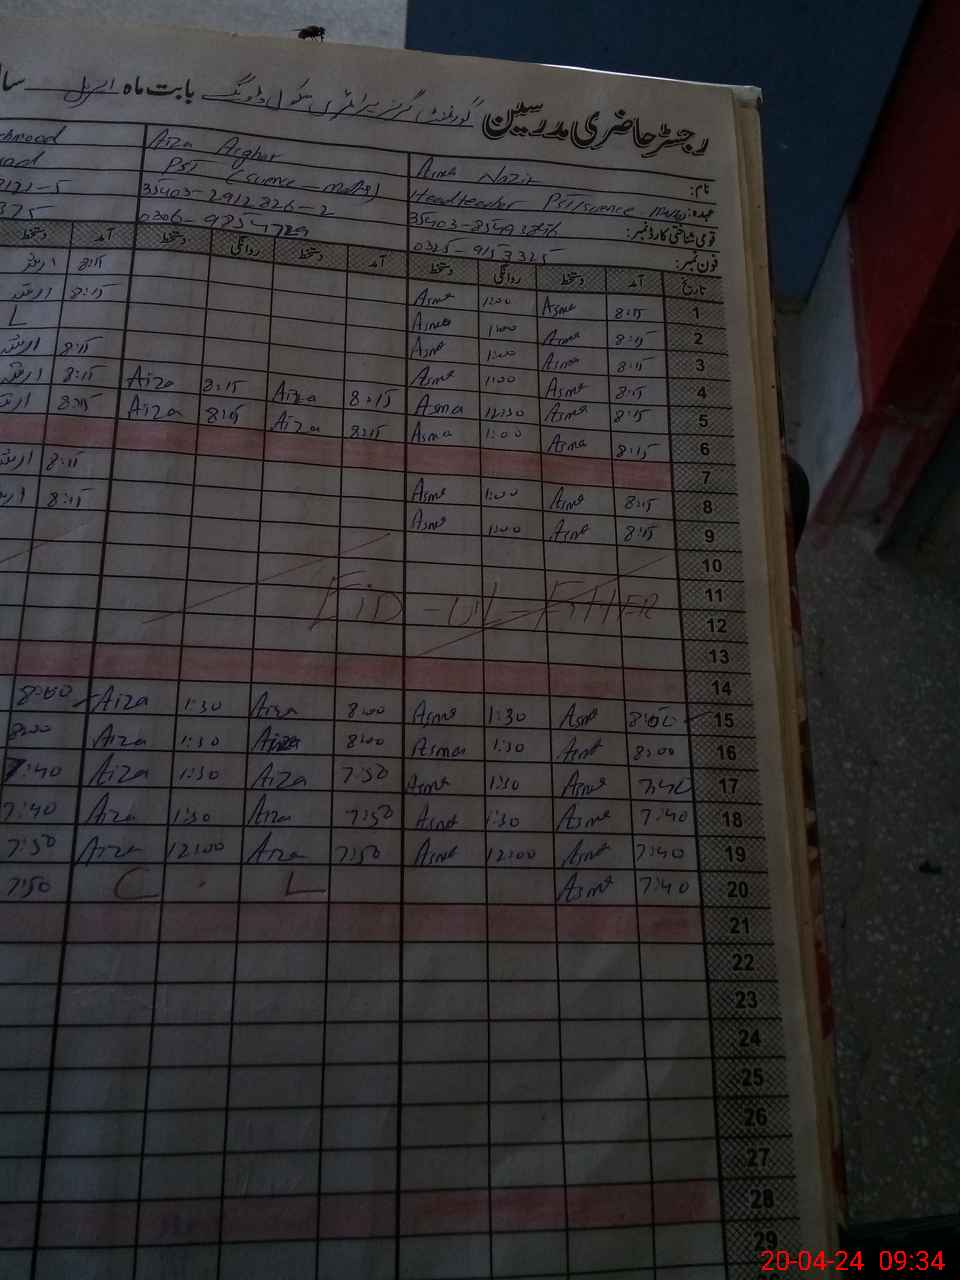 رجسٹر حاضری مدرسین گورنمنٹ گرلز پرائمری سکول بابت ماہ اپریل
نام: Asma Nazir Aiza Asghar
عہدہ: Headteacher PST (science - maths)
قومی شناختی کارڈ نمبر: 35403-2912826-2
فون نمبر: 0325-9153325 0306-9854789
تاریخ آمد دستخط روانگی دستخط آمد دستخط روانگی دستخط آمد دستخط
1 8:15 Asma 1:00 Asma 8:15
2 8:15 Asma 1:00 Asma 8:15
3 8:15 Asma 1:00 Asma L
4 8:15 Asma 1:00 Asma 8:15
5 8:15 Asma 12:30 Asma 8:15 Aiza 8:15 Aiza 8:15
6 8:15 Asma 1:00 Asma 8:15 Aiza 8:15 Aiza 8:15
7
8 8:15 Asma 1:00 Asma 8:15
9 8:15 Asma 1:00 Asma 8:15
10
11 EID-UL-FITHER
12
13
14
15 8:00 Asma 1:30 Asma 8:00 Aiza 1:30 Aiza 8:00
16 8:00 Asma 1:30 Asma 8:00 Aiza 1:30 Aiza 8:00
17 7:40 Asma 1:30 Asma 7:50 Aiza 1:30 Aiza 7:40
18 7:40 Asma 1:30 Asma 7:50 Aiza 1:30 Aiza 7:40
19 7:40 Asma 12:00 Asma 7:50 Aiza 12:00 Aiza 7:50
20 7:40 Asma L C 7:50
21
22
23
24
25
26
27
28
29
20-04-24 09:34